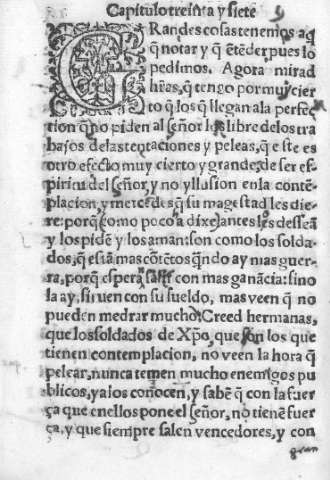 Capitulo treinta y siete
GRandes cosas tenemos aq̃
q̃ notar y q̃ ētēder pues lo
pedimos. Agora mirad
hijas, q̃ tengo por muy cier
to q̃ los q̃ llegan ala perfec
tion q̃ no piden al señor los libre de los tra
bajos de las tentaciones y peleas, q̃ este es
otro efecto muy cierto y grande, de ser es
piritu del señor, y no yllusion en la contē
placion, y mercedes q̃ su magestad les die
re: porq̃ como poco a dixe, antes les dessea̅
y los pidē y los aman: son como los solda
dos, q̃ està mas cōtētos q̃ndo ay mas guer
ra, porq̃ espera̅ salir con mas ganācia: sino
la ay, siruen con su sueldo, mas veen q̃ no
pueden medrar mucho. Creed hermanas,
que los soldados de Xp̃o, que son los que
tienen contemplacion, no veen la hora q̃
pelear, nunca temen mucho enemigos pu
blicos, ya los conocen, y sabē q̃ con la fuer
ça que en ellos pone el señor, nò tienē fuer
ça, y que siempre salen vencedores, y con
gran